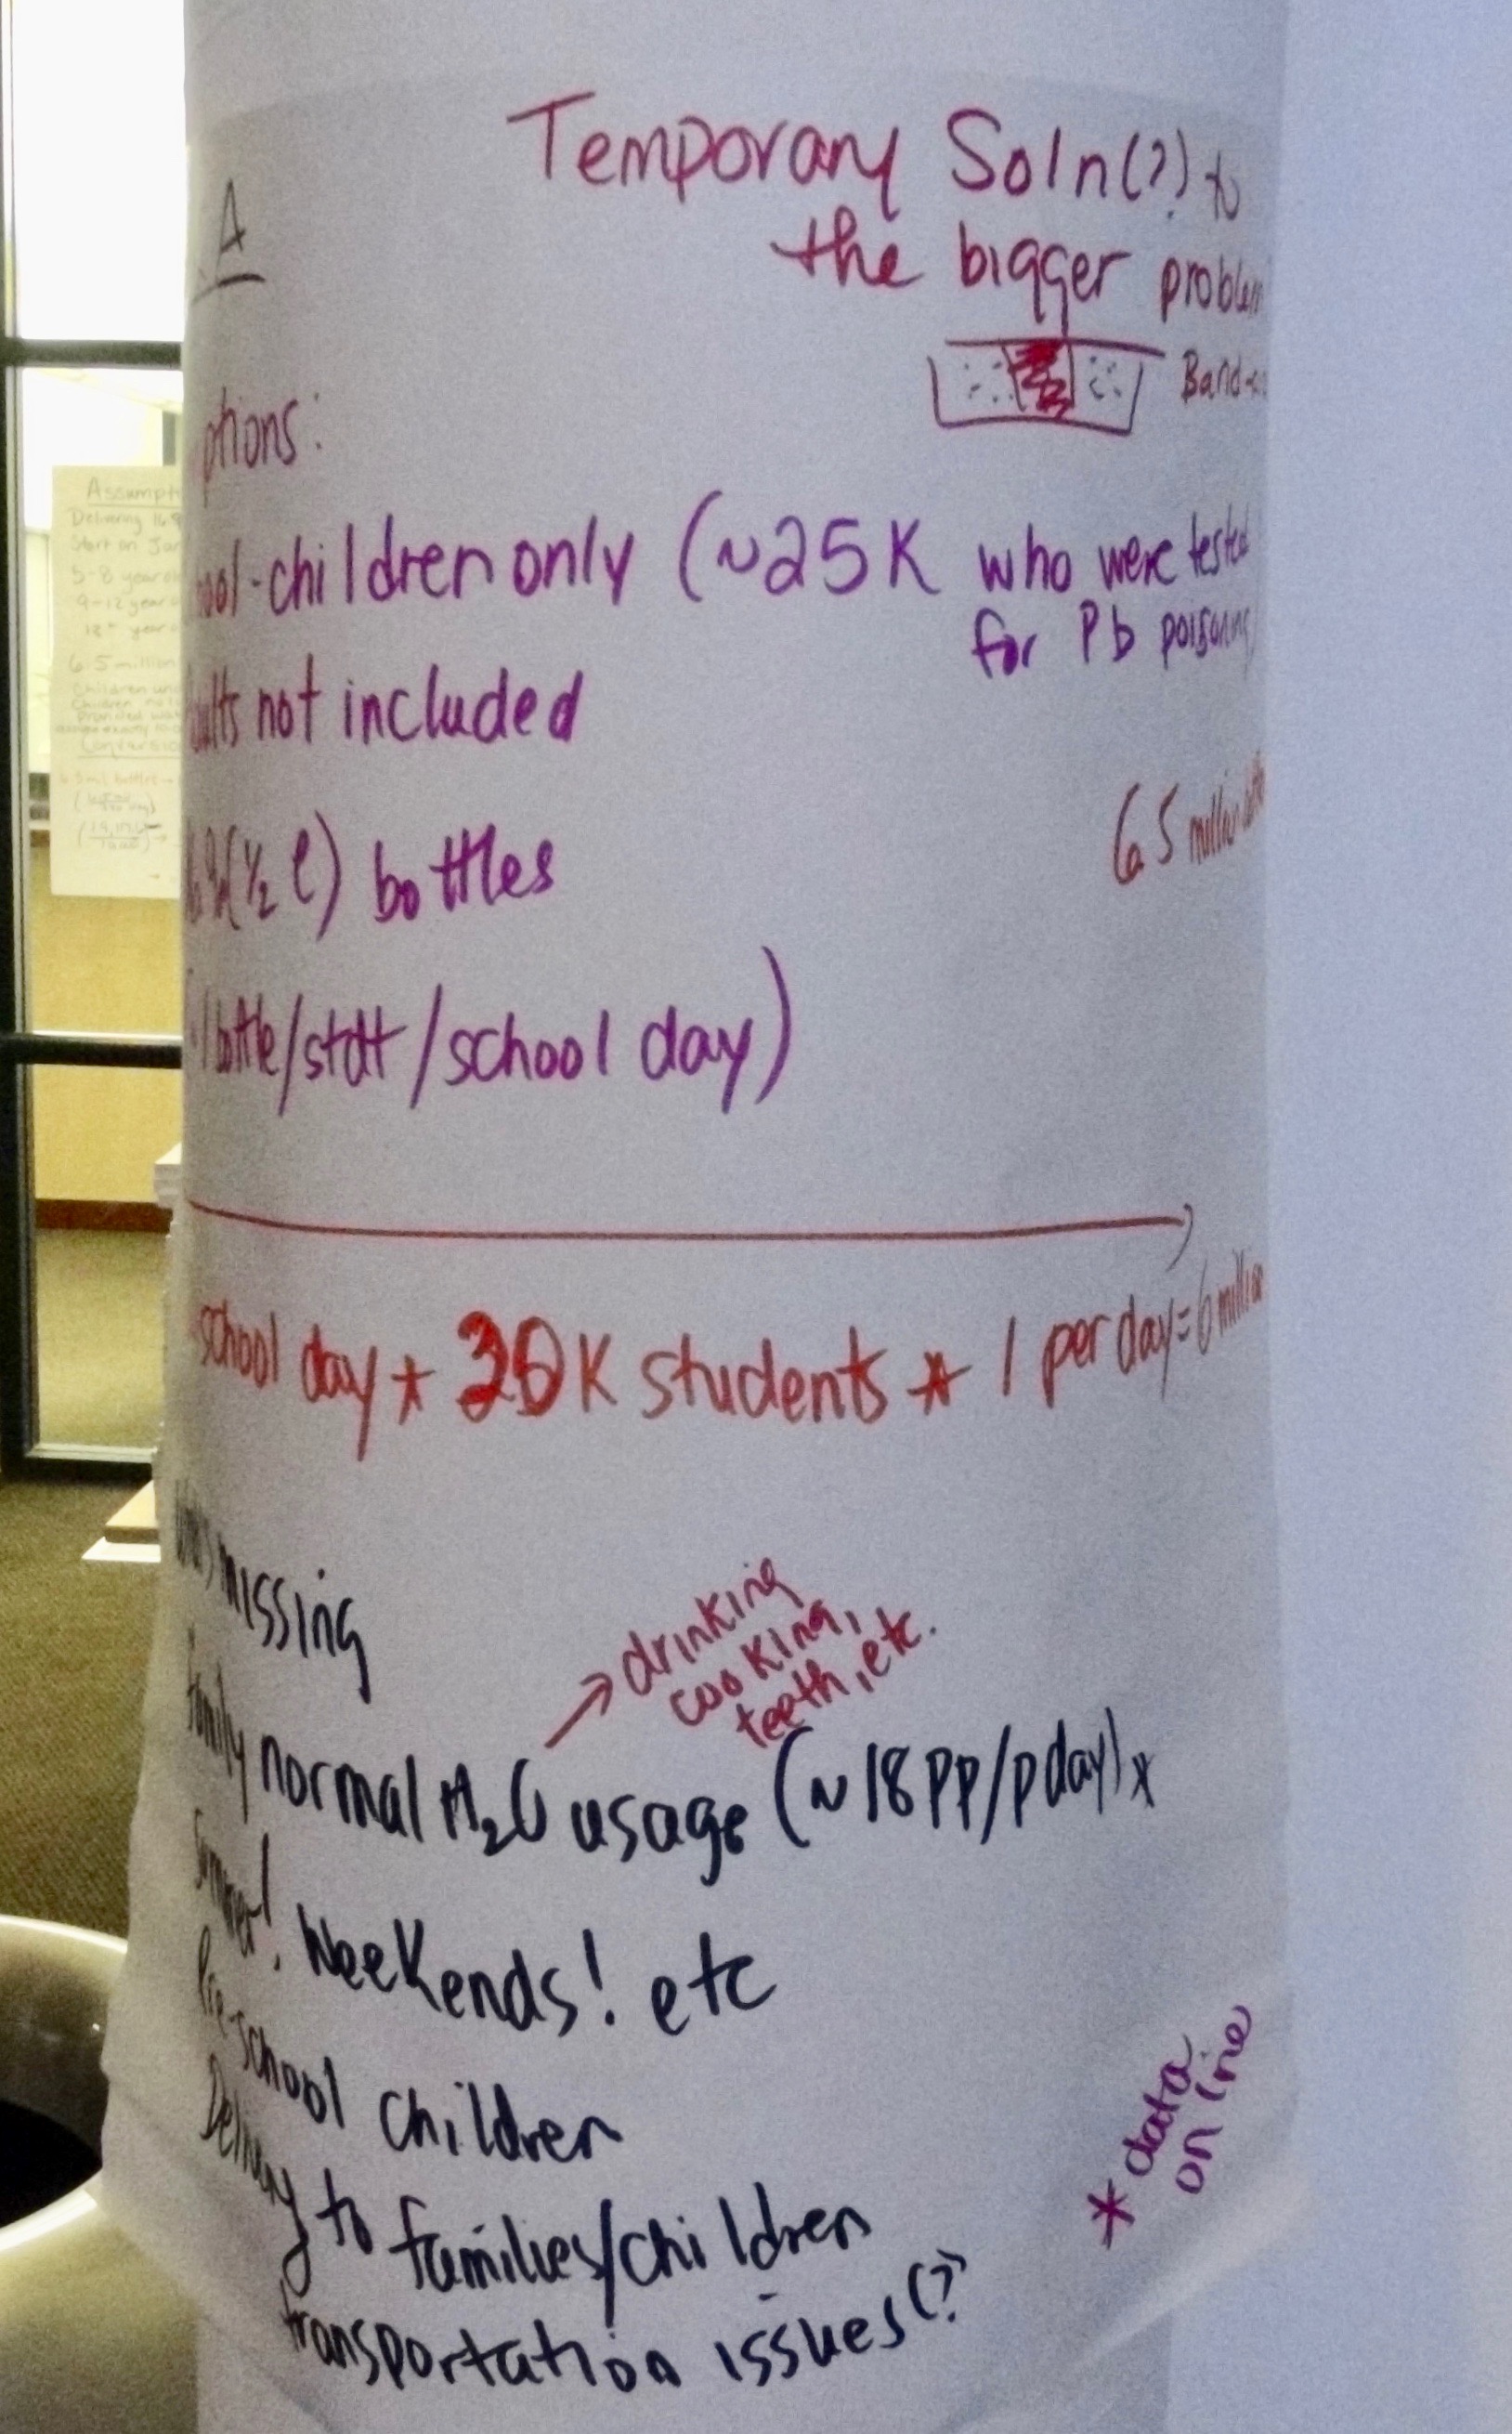 A
Temporary Soln(?) to
the bigger problem
Band-
ptions:
ool-children only (~25K who were tested
for Pb poisoning
ults not included
(½ l) bottles
6.5 million
1 bottle/stdt/school day)
school day * 30K students * 1 per day = 6 million
missing
→ drinking
cooking,
teeth, etc.
family normal H₂O usage (~18 pp/p day) x
Summer! Weekends! etc
Pre-school children
Delivery to families/children
transportation issues(?)
* data
on line
Assumpt
Delivering 16.9
Start on Jan
5-8 year ol
9-12 year
year
6.5 million
Children un
Conversio